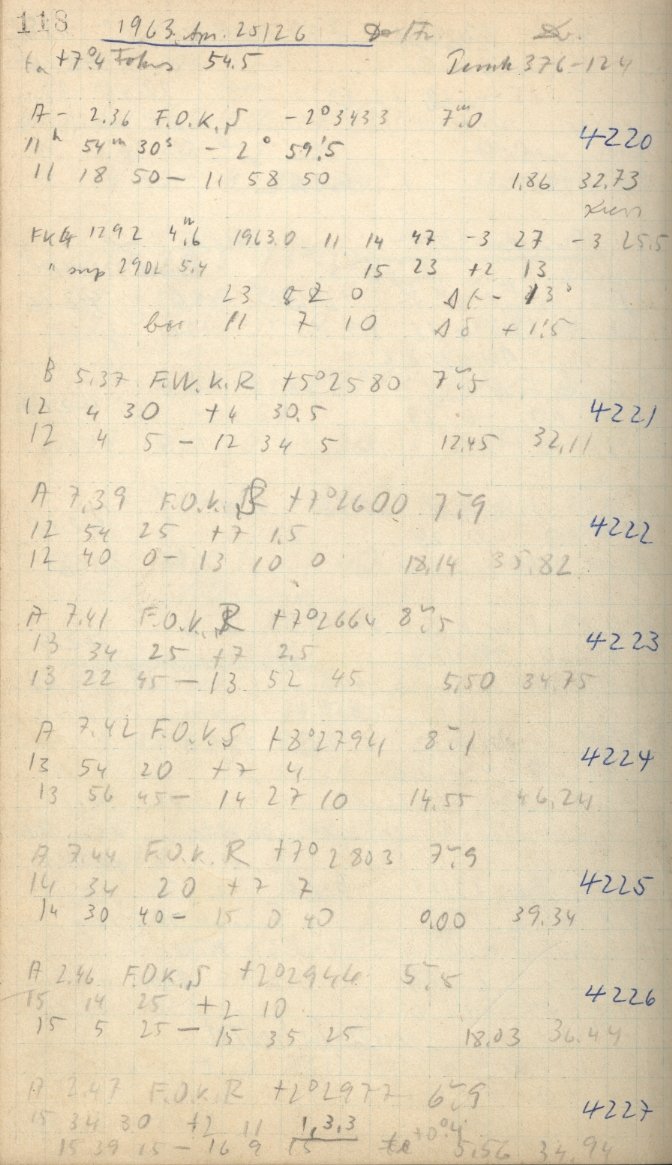 118 1963. Apr. 25/26
ta +7°4 Fokus 54.5 376-124
A - 2.36 F.O.K.S -2°3433 7ᵐ.0
4220
11ʰ 54ᵐ 30ˢ - 2° 59!5
11 18 50 - 11 58 50 1.86 32.73
1292 4ᵐ.6 1963.0 11 14 47 -3 27 -3 25.5
" sup 2902 5.4 15 23 +2 13
23 22 0 Δt - 13ˢ
11 7 10 Δδ + 1!5
B 5.37 F.W.K.R +5°2580 7ᵐ.5
12 4 30 +4 30.5 4221
12 4 5 - 12 34 5 12.45 32.11
A 7.39 F.O.K. +7°2600 7ᵐ.9
12 54 25 +7 1.5 4222
12 40 0 - 13 10 0 18.14 35.82
A 7.41 F.O.K. R +7°2664 8ᵐ.5
13 34 25 +7 2.5 4223
13 22 45 - 13 52 45 5.50 34.75
A 7.42 F.O.K.S +8°2794 8ᵐ.1
13 54 20 +7 4 4224
13 56 45 - 14 27 10 14.55 46.24
A 7.44 F.O.K.R +7°2803 7ᵐ.9
14 34 20 +7 7 4225
14 30 40 - 15 0 40 0.00 39.34
A 2.46 F.OK.S +2°2944 5ᵐ.5
15 14 25 +2 10 4226
15 5 25 - 15 35 25 18.03 36.44
A 2.47 F.O.K.R +2°2977 6ᵐ.9
15 34 30 +2 11 1,3,3 +0°4 4227
15 39 15 - 16 9 15 5.56 34.94